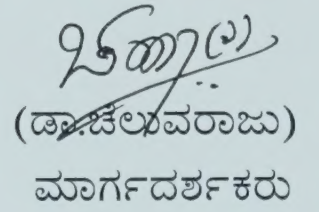 (ಡಾ.ಚೆಲುವರಾಜು)
ಮಾರ್ಗದರ್ಶಕರು